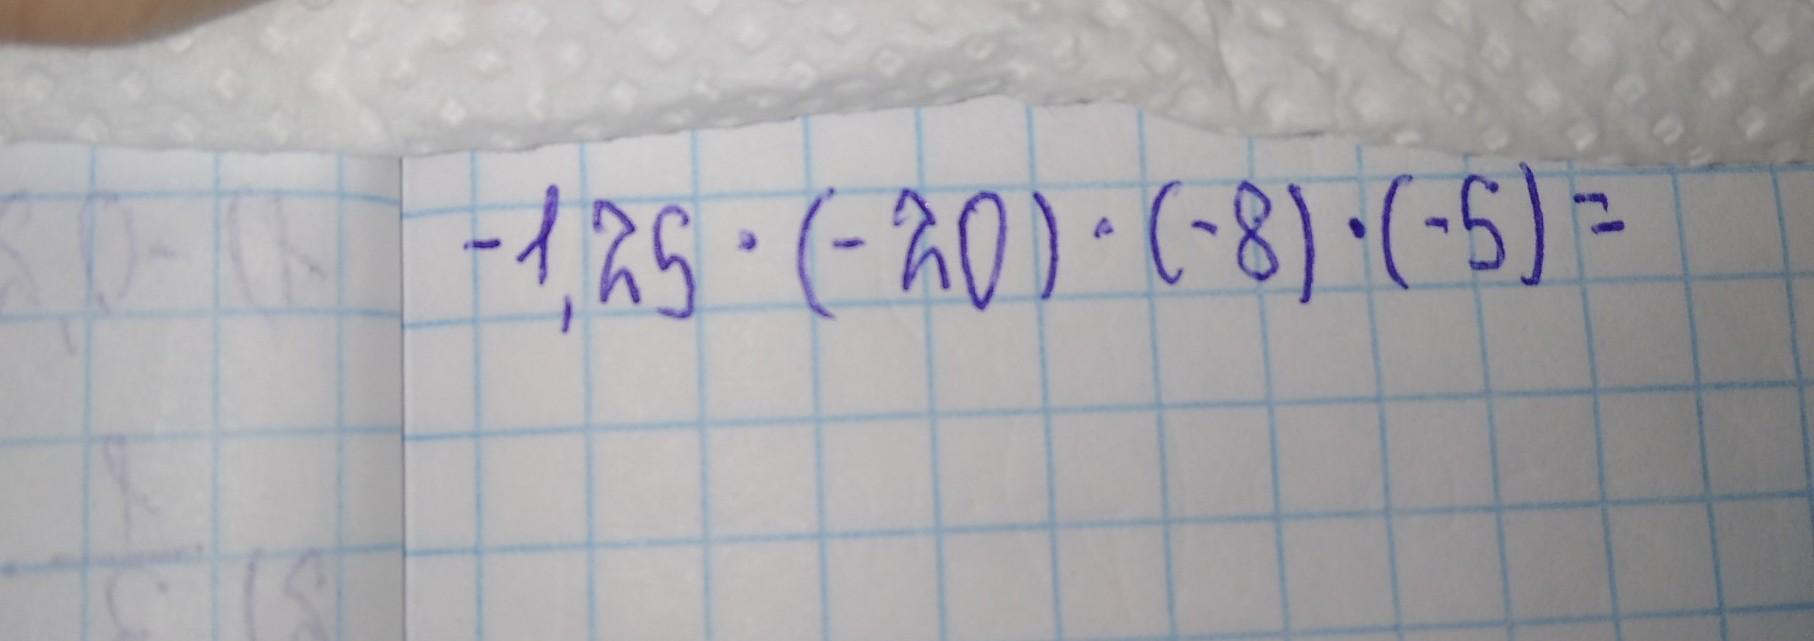 -1,25 · (-20) · (-8) · (-5) =